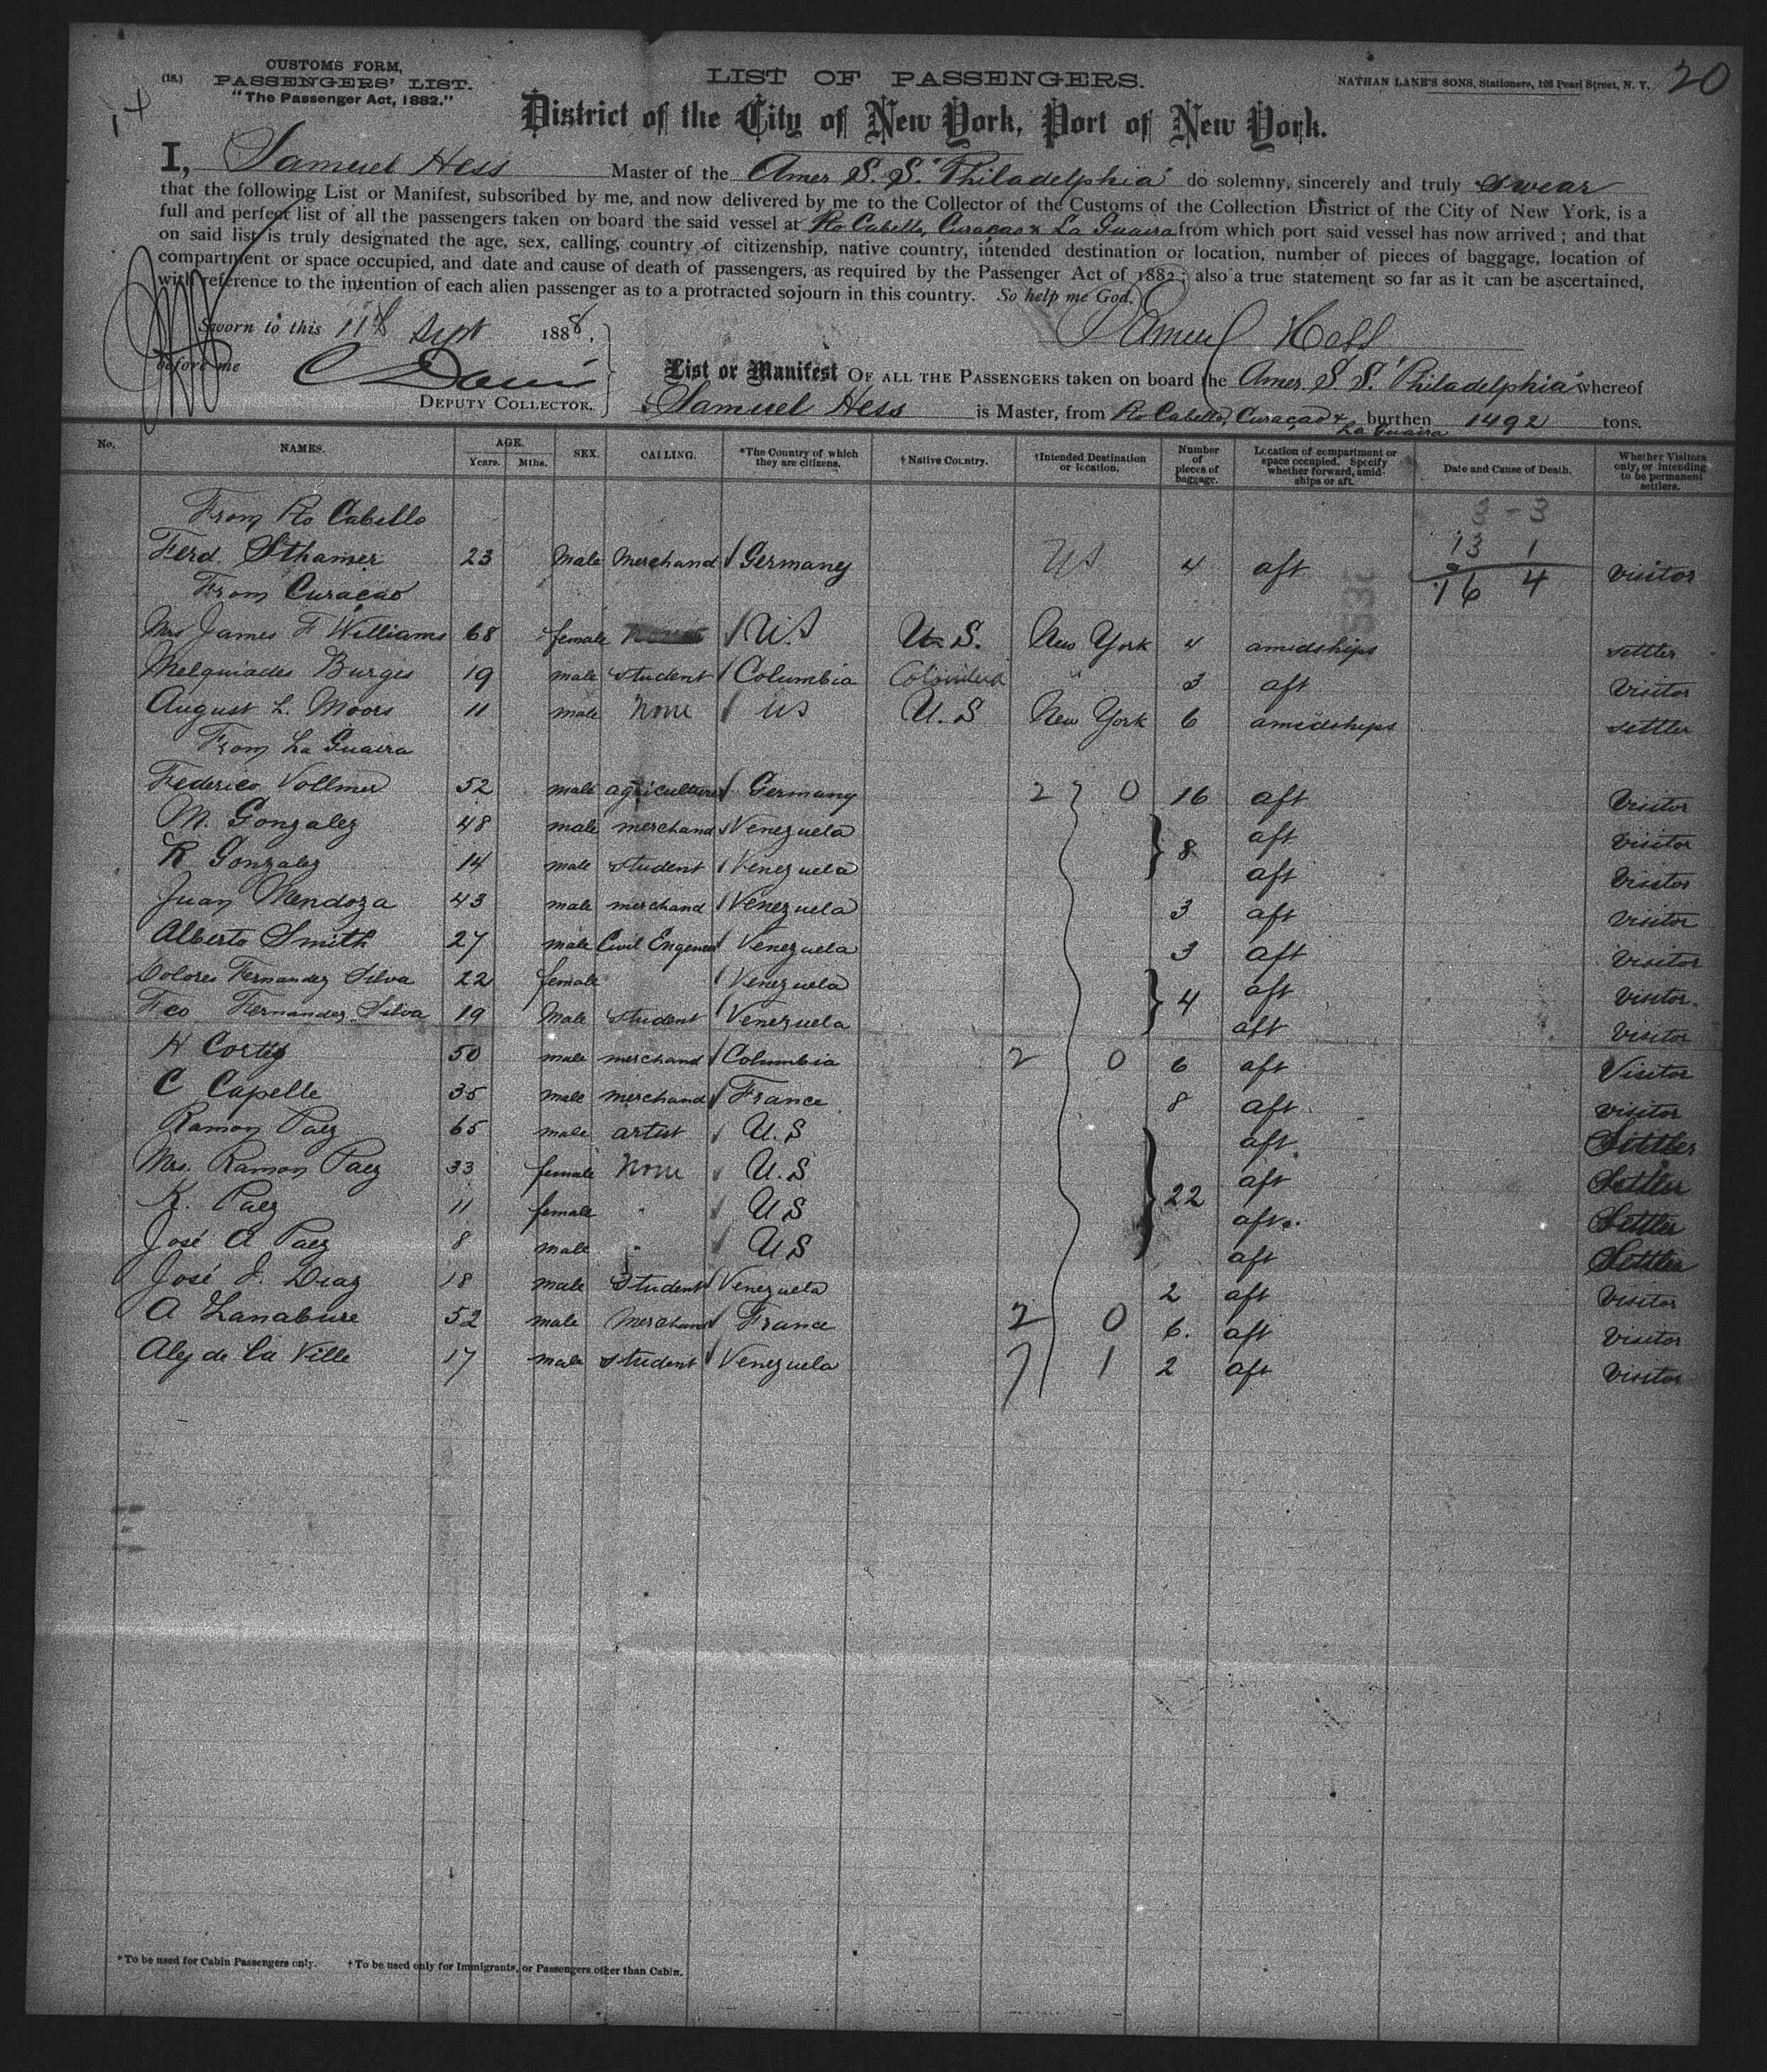 (18.)
CUSTOMS FORM,
PASSENGERS' LIST.
"The Passenger Act, 1882."
LIST OF PASSENGERS.
NATHAN LANE'S SONS, Stationers, 126 Pearl Street, N. Y.
20
14
District of the City of New York, Port of New York.
I, Samuel Hess Master of the Amer S. S. "Philadelphia" do solemny, sincerely and truly swear
that the following List or Manifest, subscribed by me, and now delivered by me to the Collector of the Customs of the Collection District of the City of New York, is a
full and perfect list of all the passengers taken on board the said vessel at Pto Cabello, Curaçao & La Guaira from which port said vessel has now arrived; and that
on said list is truly designated the age, sex, calling, country of citizenship, native country, intended destination or location, number of pieces of baggage, location of
compartment or space occupied, and date and cause of death of passengers, as required by the Passenger Act of 1882; also a true statement so far as it can be ascertained,
with reference to the intention of each alien passenger as to a protracted sojourn in this country. So help me God.
Sworn to this 11th Sept 1888.
Samuel Hess
before me
DEPUTY COLLECTOR.
List or Manifest OF ALL THE PASSENGERS taken on board the Amer. S. S. "Philadelphia" whereof
Samuel Hess is Master, from Pto Cabello, Curaçao & La Guaira burthen 1492 tons.
No. NAMES. AGE. Years. Mths. SEX. CALLING. *The Country of which they are citizens. †Native Country. †Intended Destination or location. Number of pieces of baggage. Location of compartment or space occupied. Specify whether forward, amidships or aft. Date and Cause of Death. Whether Visitors only, or intending to be permanent settlers.
From Pto Cabello 3 - 3
13 1
Ferd. Sthamer 23 Male Merchand Germany US 4 aft 16 4 visitor
From Curaçao
Mrs James F Williams 68 female US U.S. New York 4 amidships settler
Melquiades Burges 19 male student Columbia Colombia " 3 aft Visitor
August L. Moors 11 male None US U.S New York 6 amidships settler
From La Guaira
Federico Vollmer 52 male agriculturer Germany 2 0 16 aft Visitor
M. Gonzalez 48 male merchand Venezuela 8 aft Visitor
R Gonzalez 14 male student Venezuela aft Visitor
Juan Mendoza 43 male merchand Venezuela 3 aft Visitor
Alberto Smith 27 male Civil Engeneer Venezuela 3 aft Visitor
Dolores Fernandez Silva 22 female Venezuela 4 aft Visitor.
Fco Fernandez Silva 19 Male student Venezuela aft Visitor
H Cortes 50 male merchand Columbia 2 0 6 aft Visitor
C Capelle 35 male merchand France 8 aft visitor
Ramon Paez 65 male artist U.S 22 aft. Settler
Mrs. Ramon Paez 33 female None U.S aft Settler
R. Paez 11 female " US aft. Settler
José A Paez 8 male " US aft Settler
José J. Diaz 18 male Student Venezuela 2 aft Visitor
A Lanabure 52 male Merchand France 2 0 6. aft Visitor
Alej de la Ville 17 male student Venezuela 7 1 2 aft Visitor
*To be used for Cabin Passengers only. †To be used only for Immigrants, or Passengers other than Cabin.